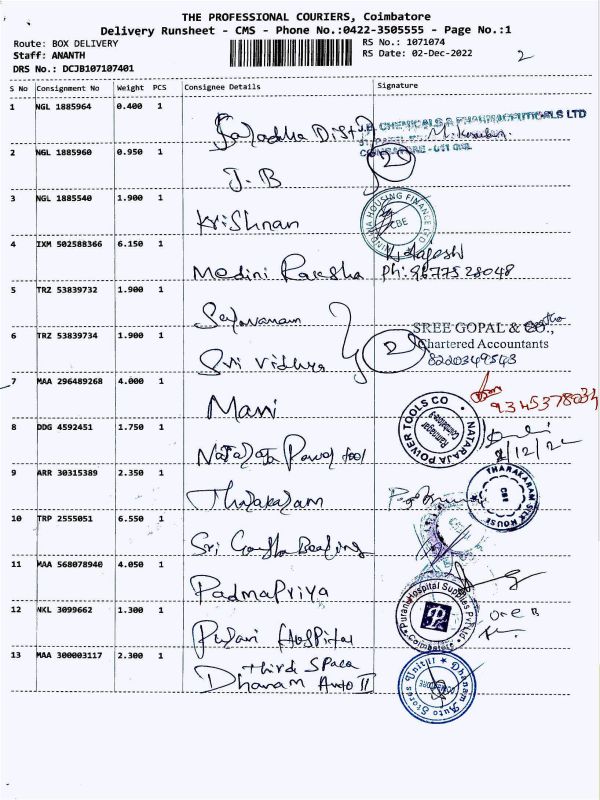 THE PROFESSIONAL COURIERS, Coimbatore
Delivery Runsheet - CMS - Phone No.:0422-3505555 - Page No.:1
Route: BOX DELIVERY RS No.: 1071074
Staff: ANANTH RS Date: 02-Dec-2022 2
DRS No.: DCJB107107401
S No Consignment No Weight PCS Consignee Details Signature
1 NGL 1885964 0.400 1
J.B. CHEMICALS & PHARMACEUTICALS LTD
COIMBATORE
2 NGL 1885960 0.950 1 2
J.B
3 NGL 1885540 1.900 1
Krishnan HOUSING FINANCE LTD CBE
4 IXM 502588366 6.150 1
Medini Raksha Ph: 9677528048
5 TRZ 53839732 1.900 1
SREE GOPAL & CO.,
6 TRZ 53839734 1.900 1 Chartered Accountants
Sri Vidhya 2 8220349543
7 MAA 296489268 4.000 1
Mani 9345378034
8 DDG 4592451 1.750 1 NATARAJA POWER TOOLS CO Ramnagar Coimbatore-9
Nataraja Power tool 2/12/22
9 ARR 30315389 2.350 1
THARAKARAM SILK HOUSE CBE
10 TRP 2555051 6.550 1
Sri
11 MAA 568078940 4.050 1
PadmaPriya
12 NKL 3099662 1.300 1 Purani Hospital Supplies Pvt Ltd Coimbatore
Purani Hospital
13 MAA 300003117 2.300 1 Third Space
Dhanam Auto II Dhanam Auto Stores Unit II